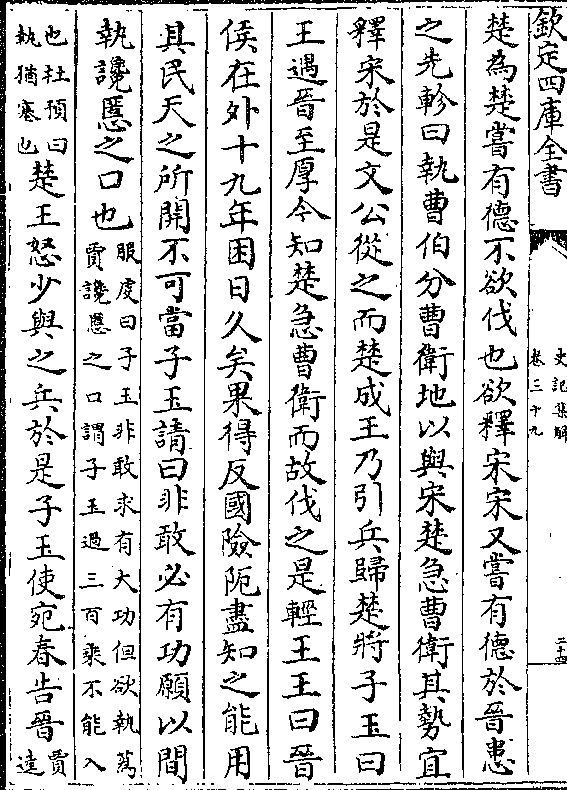 欽定四庫全書
史記集解
卷三十九
二十四
楚為楚嘗有德不欲伐也欲釋宋宋又嘗有德於晉患
之先軫曰執曹伯分曹衛地以與宋楚急曹衛其勢宜
釋宋於是文公從之而楚成王乃引兵歸楚將子玉曰
王遇晉至厚今知楚急曹衛而故伐之是輕王王曰晉
侯在外十九年困日久矣果得反國險阨盡知之能用
其民天之所開不可當子玉請曰非敢必有功願以間
執讒慝之口也服虔曰子玉非敢求有大功但欲執蒍
賈讒慝之口謂子玉過三百乘不能入
也杜預曰
執猶塞也楚王怒少與之兵於是子玉使宛春告晉賈
逵